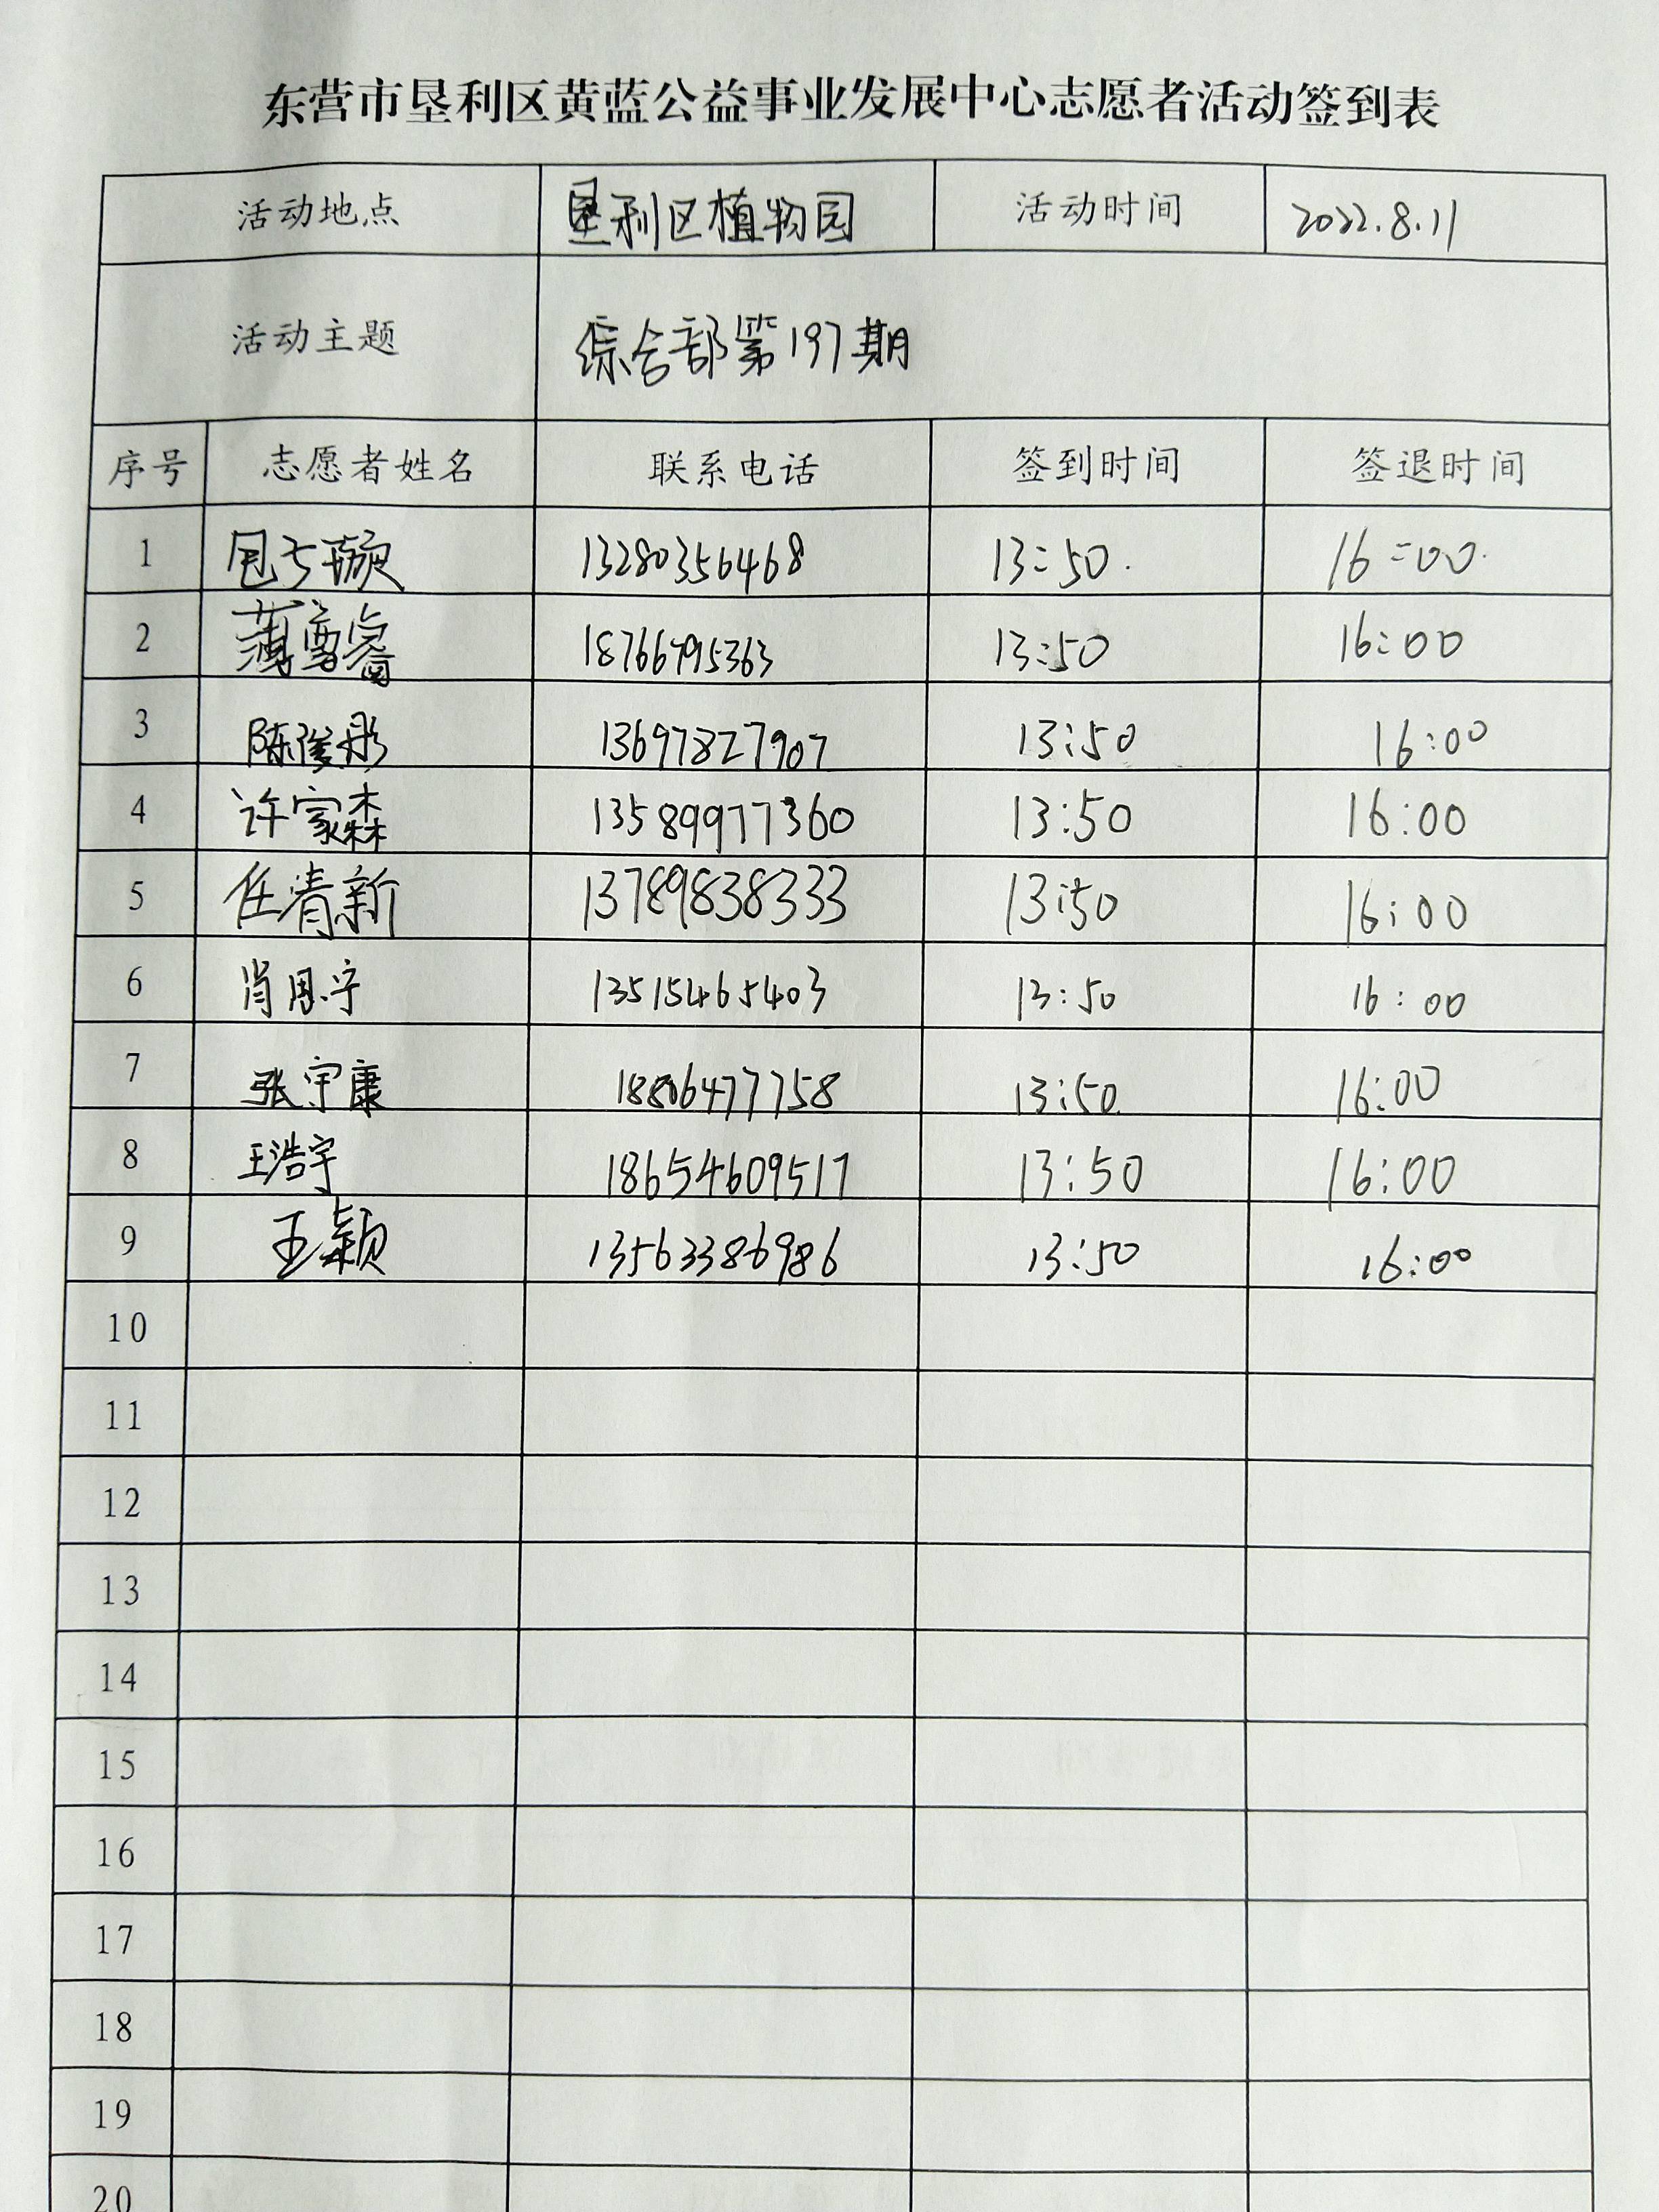 东营市垦利区黄蓝公益事业发展中心志愿者活动签到表
活动地点 垦利区植物园 活动时间 2022.8.11
活动主题 综合部第197期
序号 志愿者姓名 联系电话 签到时间 签退时间
1 13280356468 13:50. 16:00.
2 薄雪睿 18766795363 13:50 16:00
3 陈俊彤 13697827907 13:50 16:00
4 许家森 13589977360 13:50 16:00
5 任清新 13789838333 13:50 16:00
6 肖恩宁 13515465403 13:50 16:00
7 张宇康 18806477758 13:50 16:00
8 王浩宇 18654609517 13:50 16:00
9 王颖 13563386986 13:50 16:00
10
11
12
13
14
15
16
17
18
19
20